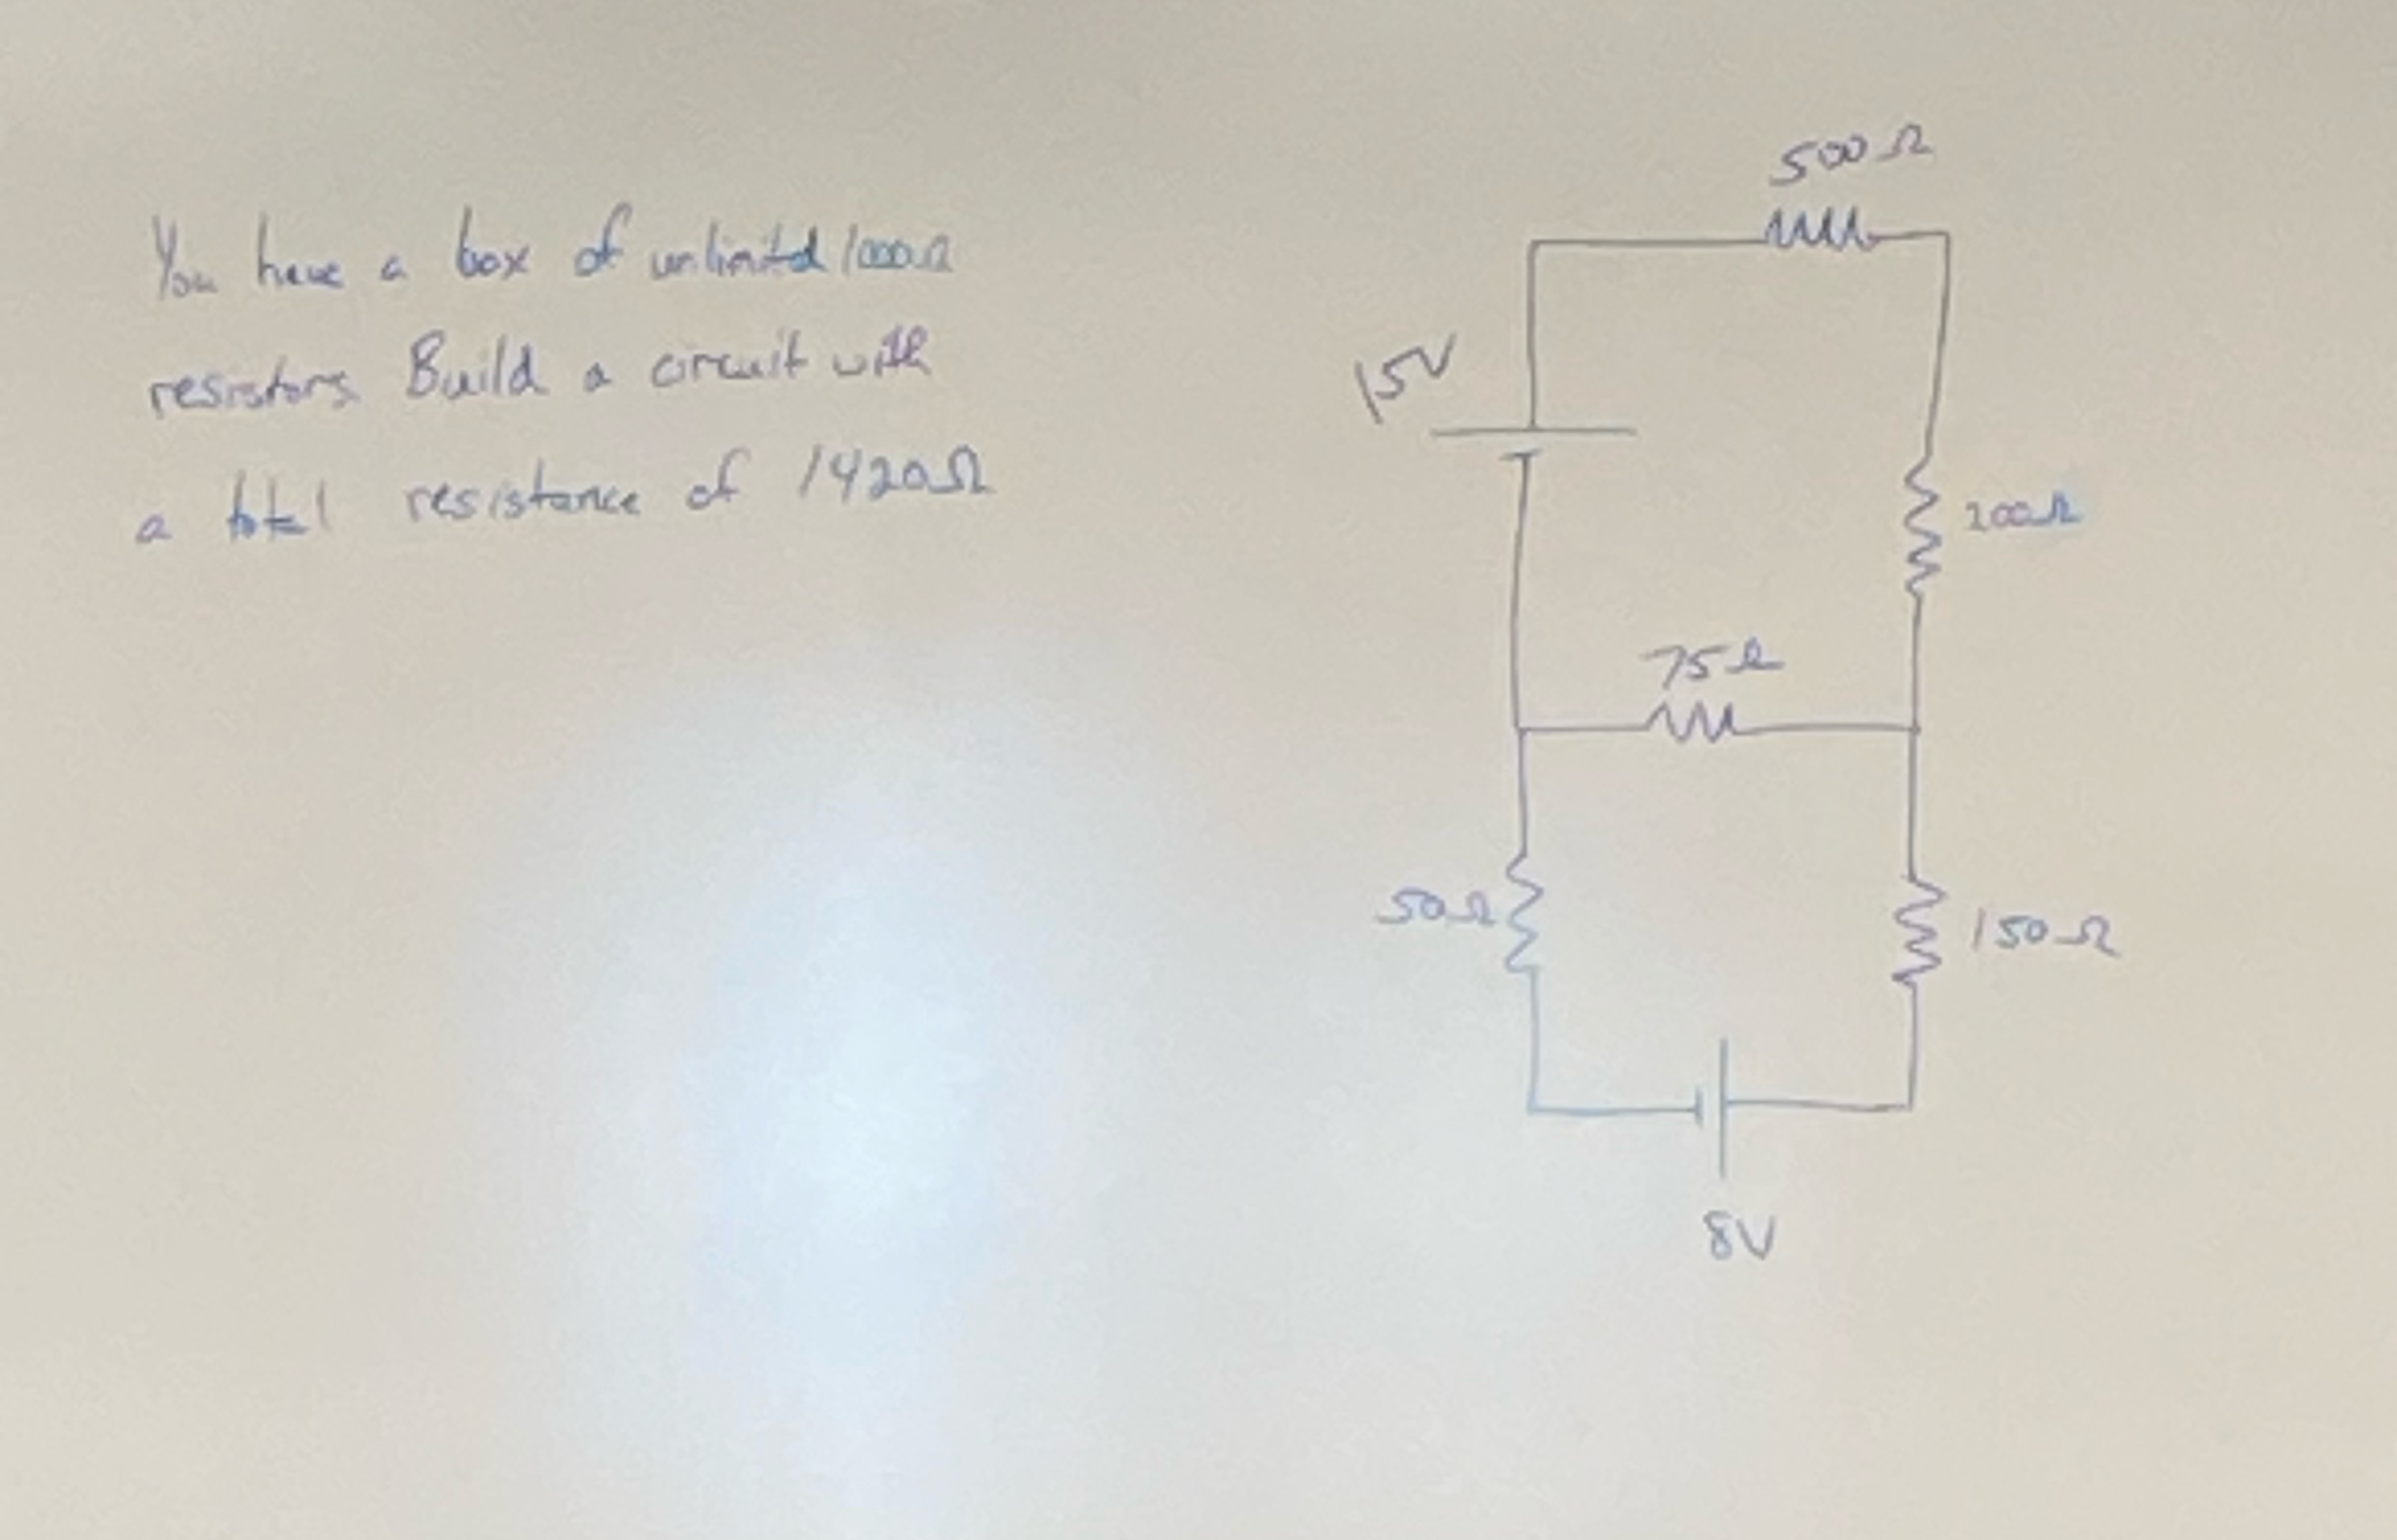 You have a box of unlimited 1000Ω
resistors. Build a circuit with
a total resistance of 1420Ω
500Ω
15V
200Ω
75Ω
50Ω
150Ω
8V